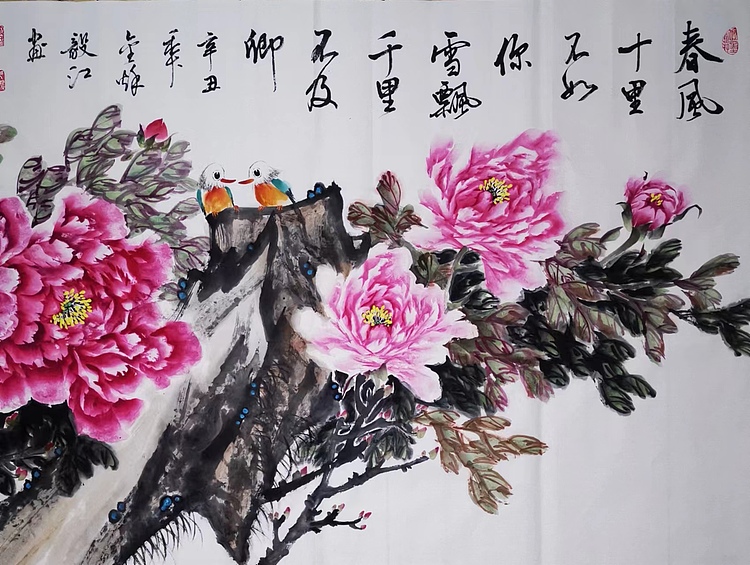 春風
十里
不如
你
雪飄
千里
不及
卿
辛丑
年
金秋
毅江
畫